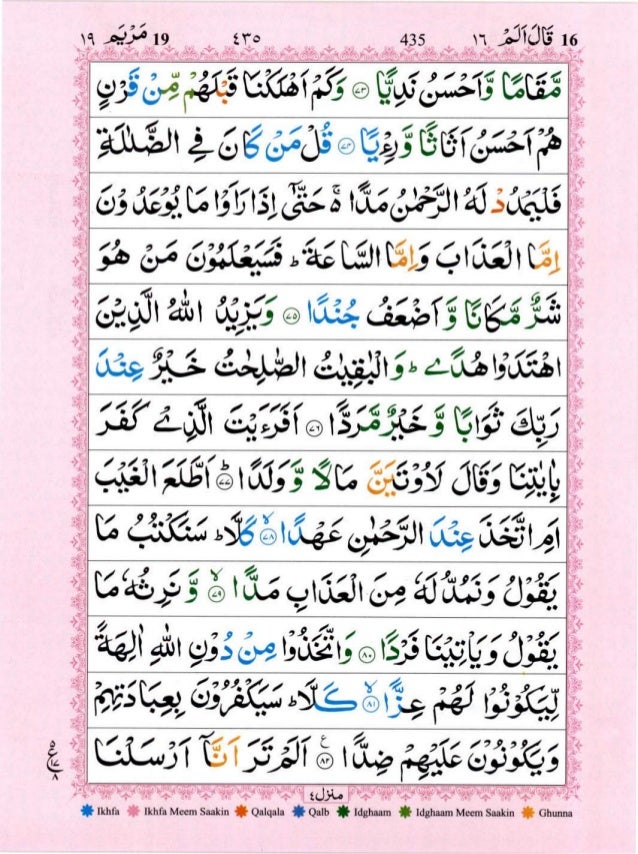 ۱۹ مَرْيَم 19 ۴۳۵ 435 قَالَ اَلَمْ ۱۶ 16
مَّقَامًا وَّاَحْسَنُ نَدِيًّا ۝۷۳ وَكَمْ اَهْلَكْنَا قَبْلَهُمْ مِّنْ قَرْنٍ
هُمْ اَحْسَنُ اَثَاثًا وَّرِءْيًا ۝۷۴ قُلْ مَنْ كَانَ فِي الضَّلٰلَةِ
فَلْيَمْدُدْ لَهُ الرَّحْمٰنُ مَدًّا ۚ۬ حَتّٰٓى اِذَا رَاَوْا مَا يُوْعَدُوْنَ
اِمَّا الْعَذَابَ وَاِمَّا السَّاعَةَ ؕ فَسَيَعْلَمُوْنَ مَنْ هُوَ
شَرٌّ مَّكَانًا وَّاَضْعَفُ جُنْدًا ۝۷۵ وَيَزِيْدُ اللّٰهُ الَّذِيْنَ
اهْتَدَوْا هُدًى ؕ وَالْبٰقِيٰتُ الصّٰلِحٰتُ خَيْرٌ عِنْدَ
رَبِّكَ ثَوَابًا وَّخَيْرٌ مَّرَدًّا ۝۷۶ اَفَرَءَيْتَ الَّذِيْ كَفَرَ
بِاٰيٰتِنَا وَقَالَ لَاُوْتَيَنَّ مَالًا وَّوَلَدًا ؕ۝۷۷ اَطَّلَعَ الْغَيْبَ
اَمِ اتَّخَذَ عِنْدَ الرَّحْمٰنِ عَهْدًا ۙ۝۷۸ كَلَّا ؕ سَنَكْتُبُ مَا
يَقُوْلُ وَنَمُدُّ لَهٗ مِنَ الْعَذَابِ مَدًّا ۙ۝۷۹ وَّنَرِثُهٗ مَا
يَقُوْلُ وَيَاْتِيْنَا فَرْدًا ۝۸۰ وَاتَّخَذُوْا مِنْ دُوْنِ اللّٰهِ اٰلِهَةً
لِّيَكُوْنُوْا لَهُمْ عِزًّا ۙ۝۸۱ كَلَّا ؕ سَيَكْفُرُوْنَ بِعِبَادَتِهِمْ
وَيَكُوْنُوْنَ عَلَيْهِمْ ضِدًّا ۝۸۲ اَلَمْ تَرَ اَنَّآ اَرْسَلْنَا
۵ ع ۱۷ ۸
منزل ۴
Ikhfa Ikhfa Meem Saakin Qalqala Qalb Idghaam Idghaam Meem Saakin Ghunna